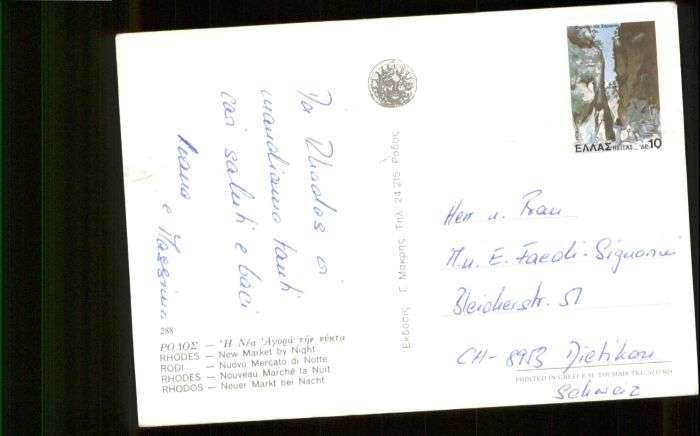 Da Rhodos vi
mandiamo tanti
cari saluti e baci
e Massimo
288
ΡΟΔΟΣ — Ἡ Νέα Ἀγορά τήν νύκτα
RHODES — New Market by Night
RODI — Nuovo Mercato di Notte
RHODES — Nouveau Marché la Nuit
RHODOS — Neuer Markt bei Nacht
Εκδοσις Γ. Μακρης Τηλ. 24 215 Ροδος
ΕΛΛΑΣ HELLAS ΔΡ 10
Herr u. Frau
M. u. E. Faedi-Signorini
Bleicherstr. 51
CH-8953 Dietikon
Schweiz
PRINTED IN GREECE